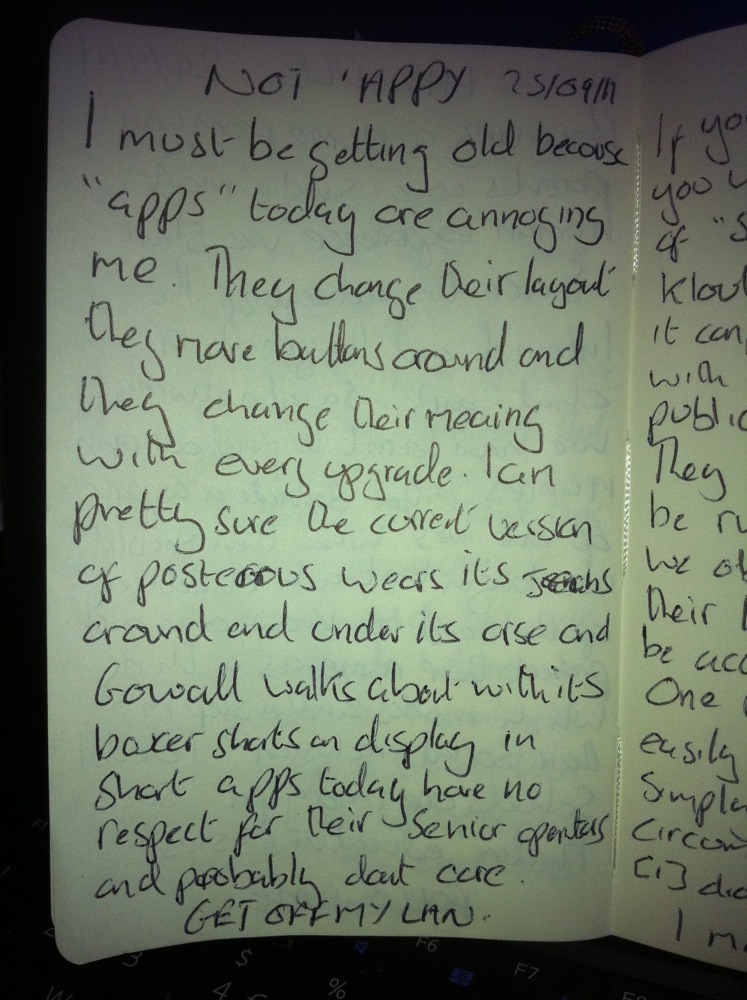 NOT 'APPY 25/09/11
I must be getting old because
"apps" today are annoying
me. They change their layout
they move buttons around and
they change their meaning
with every upgrade. I am
pretty sure the current version
of posterous wears its jeans
around and under its arse and
Gowall walks about with its
boxer shorts on display in
short apps today have no
respect for their senior operators
and probably dont care.
GET OFF MY LAN.
If yo
you
of "S
Klou
it can
with
public
They
be ru
we ob
their
be acc
One
easily
Simpl
Circum
[i] did
I m
F6
3 $ F7
4 %